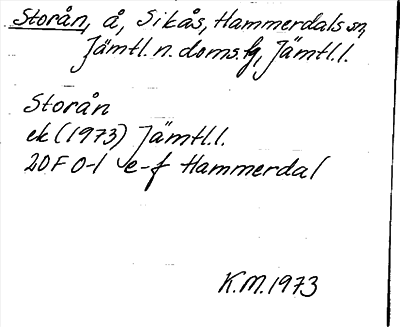 Storån, å, Sikås, Hammerdals sn,
Jämtl. n. doms. fg, Jämtl. l.
Storån
ek (1973) Jämtl. l.
20F 0-1 e-f Hammerdal
K.M. 1973